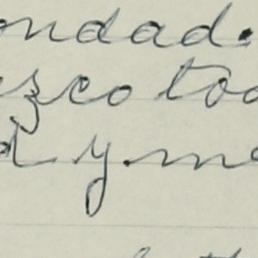 ondad.
ezco to
d y m